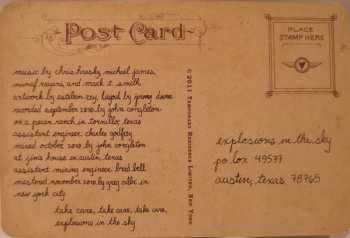 Post Card
PLACE
STAMP HERE
music by chris hrasky, michael james,
munaf rayani, and mark t. smith
artwork by esteban rey, layout by jeremy
recorded september 2010 by john congleton
on a pecan ranch in tornillo, texas
assistant engineer: charles godfrey
mixed october 2010 by john congleton
at jim's house in austin, texas
assistant mixing engineer: brad bell
mastered november 2010 by greg calbi in
new york city
take care, take care, take care,
explosions in the sky
© 2011 Temporary Residence Limited, New York
explosions in the sky
po box 49577
austin, texas 78765